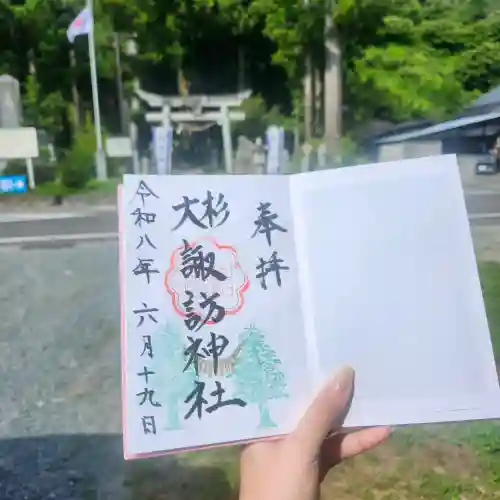 奉拝
大杉
諏訪神社
令和八年 六月十九日